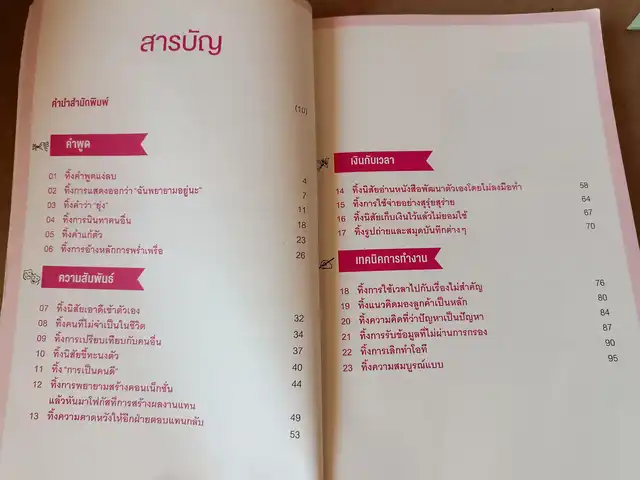 สารบัญ
คำนำสำนักพิมพ์ (10)
คำพูด
01 ทิ้งคำพูดแง่ลบ 4
02 ทิ้งการแสดงออกว่า "ฉันพยายามอยู่นะ" 7
03 ทิ้งคำว่า "ยุ่ง" 11
04 ทิ้งการนินทาคนอื่น 18
05 ทิ้งคำแก้ตัว 23
06 ทิ้งการอ้างหลักการพร่ำเพรื่อ 26
ความสัมพันธ์
07 ทิ้งนิสัยเอาดีเข้าตัวเอง 32
08 ทิ้งคนที่ไม่จำเป็นในชีวิต 34
09 ทิ้งการเปรียบเทียบกับคนอื่น 37
10 ทิ้งนิสัยขี้ทะนงตัว 40
11 ทิ้ง "การเป็นคนดี" 44
12 ทิ้งการพยายามสร้างคอนเน็กชั่น
แล้วหันมาโฟกัสที่การสร้างผลงานแทน 49
13 ทิ้งความคาดหวังให้อีกฝ่ายตอบแทนกลับ 53
เงินกับเวลา
14 ทิ้งนิสัยอ่านหนังสือพัฒนาตัวเองโดยไม่ลงมือทำ 58
15 ทิ้งการใช้จ่ายอย่างสุรุ่ยสุร่าย 64
16 ทิ้งนิสัยเก็บเงินไว้แล้วไม่ยอมใช้ 67
17 ทิ้งรูปถ่ายและสมุดบันทึกต่างๆ 70
เทคนิคการทำงาน
18 ทิ้งการใช้เวลาไปกับเรื่องไม่สำคัญ 76
19 ทิ้งแนวคิดมองลูกค้าเป็นหลัก 80
20 ทิ้งความคิดที่ว่าปัญหาเป็นปัญหา 84
21 ทิ้งการรับข้อมูลที่ไม่ผ่านการกรอง 87
22 ทิ้งการเลิกทำโอที 90
23 ทิ้งความสมบูรณ์แบบ 95